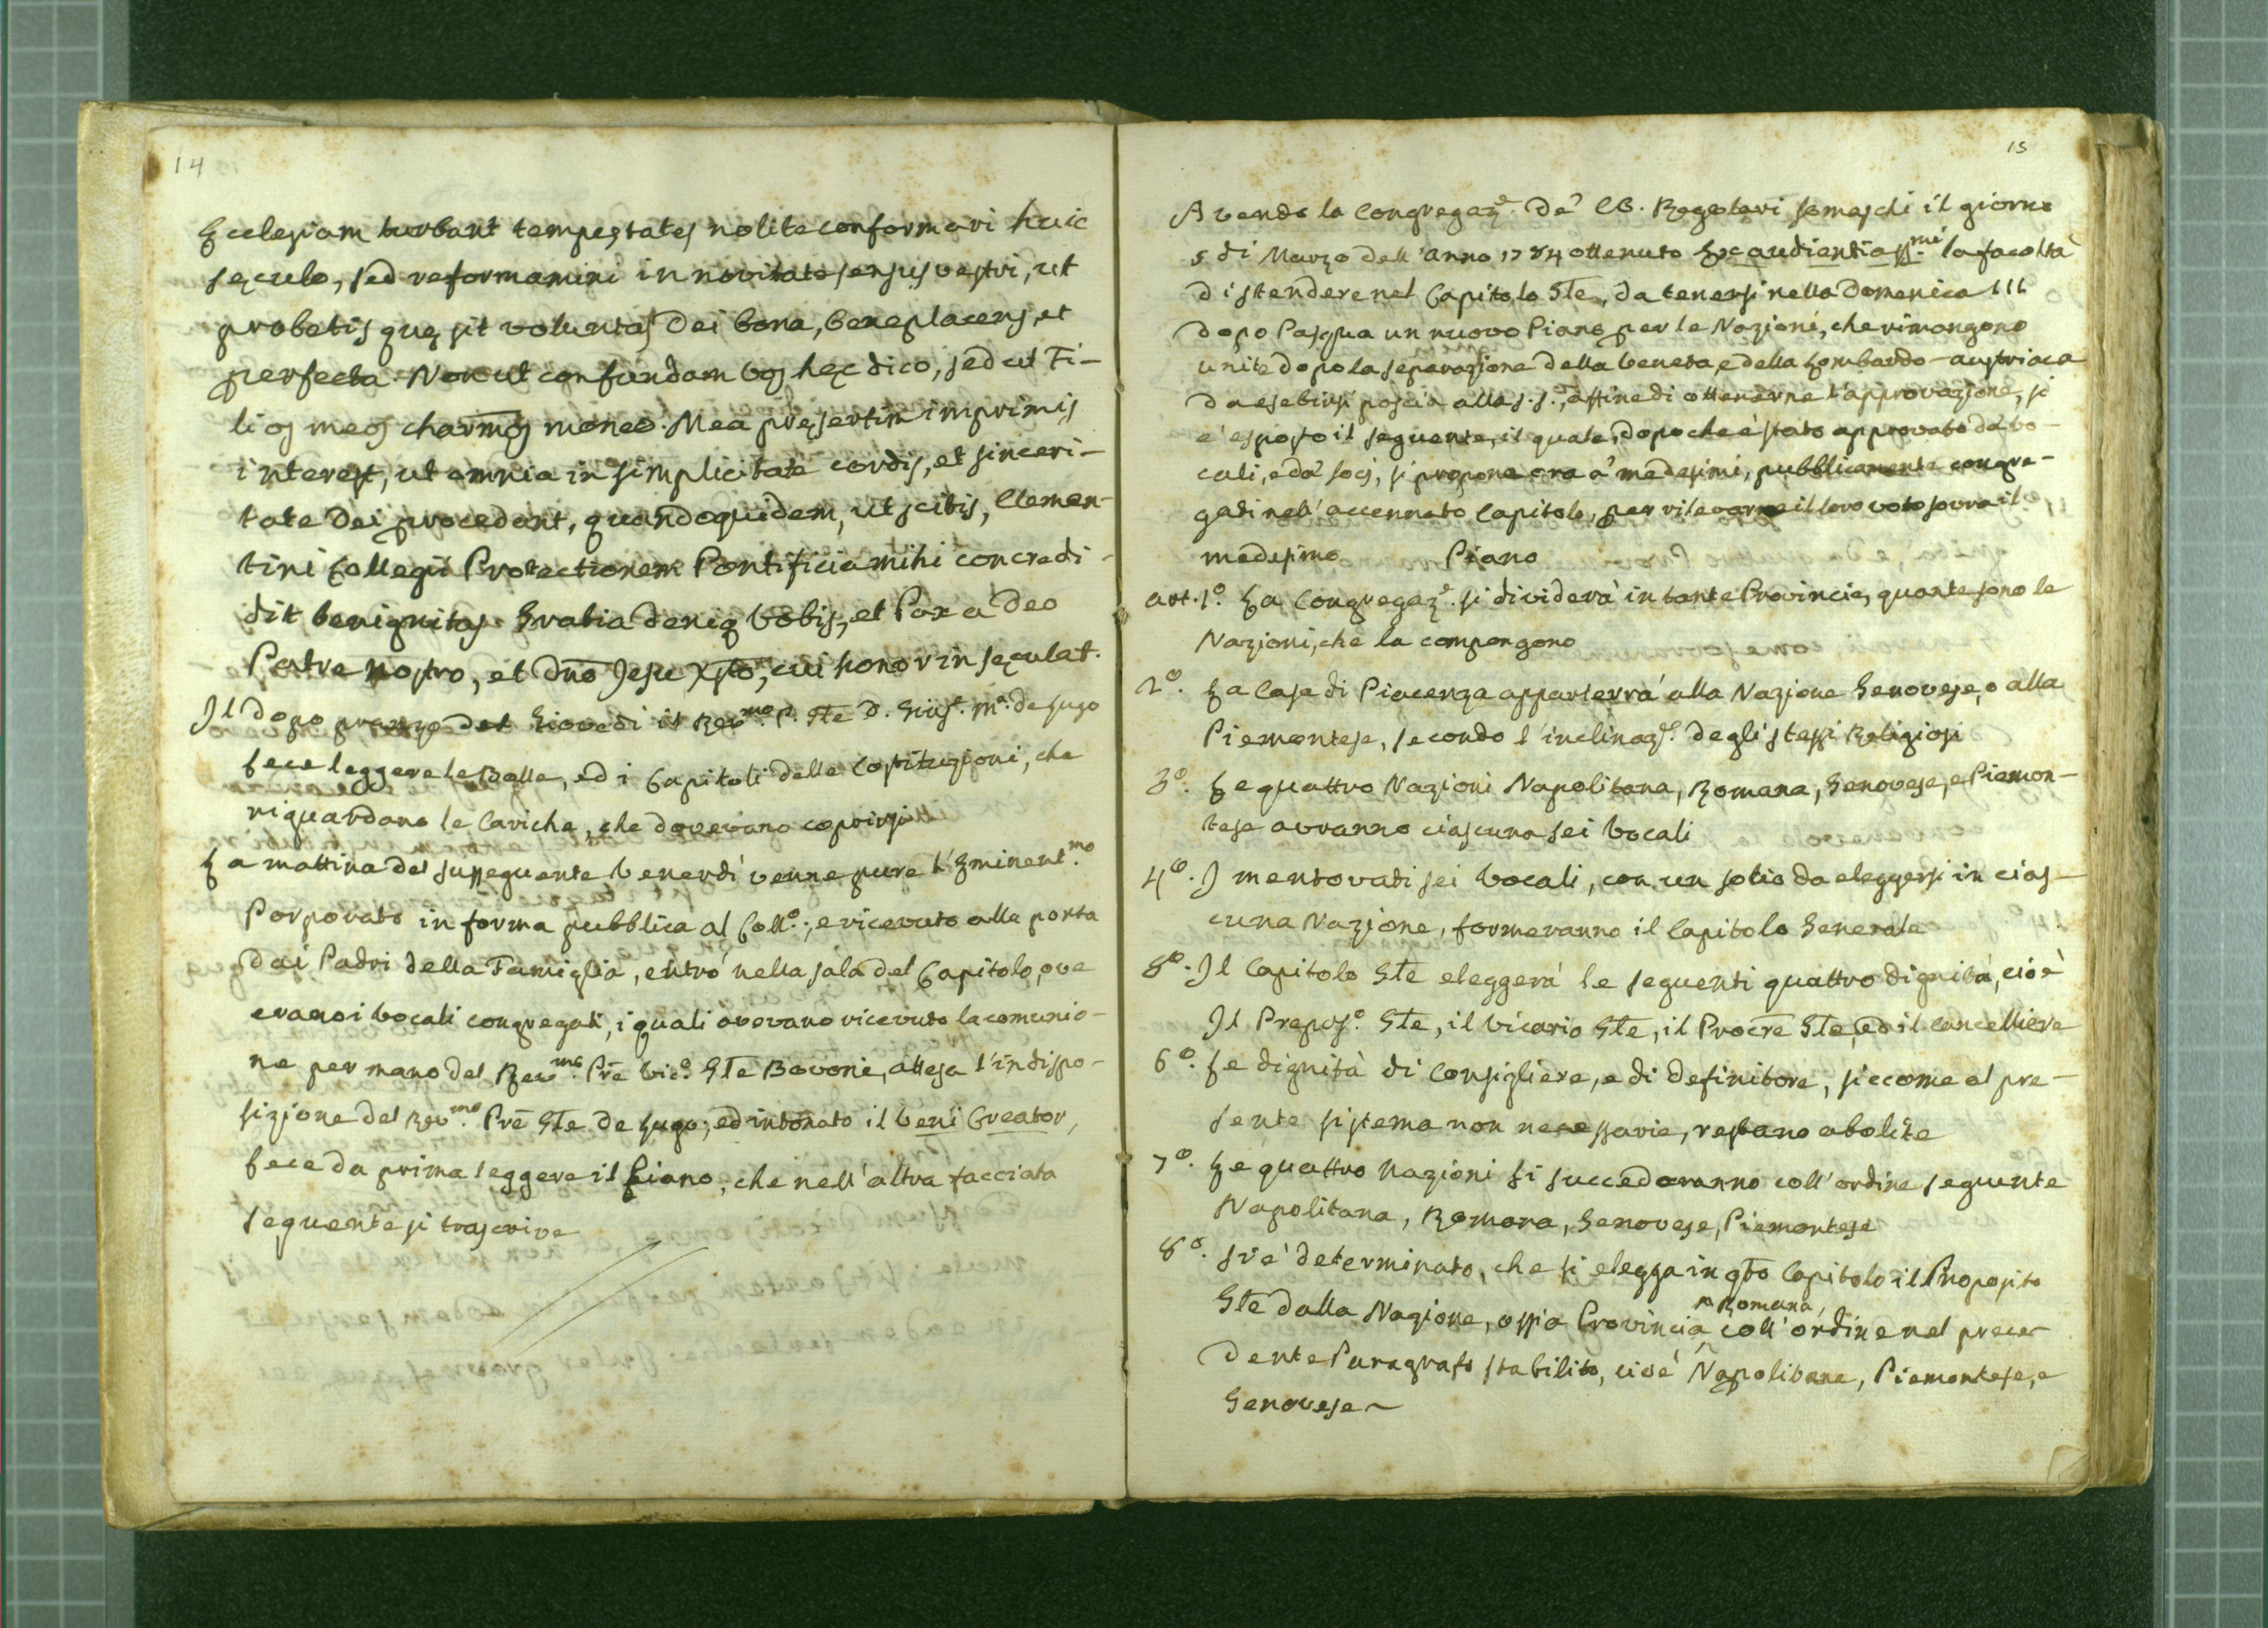 14
Ecclesiam turbant tempestates nolite conformari huic
sęculo, sed reformamini in novitate sensus vestri, ut
probetis quę sit voluntas Dei bona, beneplacens, et
perfecta. Non ut confundam vos hęc dico, sed ut Fi-
lios meos charmos moneo. Mea pręsertim imprimis
interest, ut omnia in simplicitate cordis, et sinceri-
tate Dei procedant, quandoquidem, ut scitis, Clemen-
tini Collegii Protectionem Pontificia mihi concredi-
dit benignitas. Gratia deniq vobis, et Pax a Deo
Patre nostro, et dno Jesu Xpto, cui honor in sęculat.
Il dopo pranzo del Giovedi il Revmo. P. Gle D. Gius.e M.a de Lugo
fece leggere le Bolle, ed i Capitoli delle Costituzioni, che
riguardano le Cariche, che dovevano coprirsi
La mattina del susseguente Venerdì venne pure l'Eminentmo.
Porporato in forma pubblica al Coll.o; e ricevuto alla porta
dai Padri della Famiglia, entrò nella sala del Capitolo, ove
erano i Vocali congregati, i quali avevano ricevuto la comunio-
ne per mano del Revmo. Pre Vic.o Gle Bovoni, attesa l'indispo-
sizione del Revmo. Pre Gle de Lugo; ed intonato il Veni Creator,
fece da prima leggere il Piano, che nell'altra facciata
seguente si trascrive
15
Avendo la Congregaz.e de' CC. Regolari Somaschi il giorno
5 di Marzo dell'anno 1784 ottenuto Ex audientia SSmi. la facoltà
di stendere nel Capitolo Gle, da tenersi nella Domenica III
dopo Pasqua un nuovo Piano per le Nazioni, che rimangono
unite dopo la separazione della Veneta, e della Lombardo-austriaca
da esebirsi poscia alla S.S., affine di ottenerne l'approvazione, si
e' esposto il seguente, il quale, dopo che è stato approvato da' vo-
cali, e da' socj, si propone ora a' medesimi, pubblicamente congre-
gati nell'accennato Capitolo, per rilevarne il loro voto sovra il
medesimo Piano
art. 1o. La Congregaz.e si dividerà in tante Provincie, quante sono le
Nazioni, che la compongono
2o. La Casa di Piacenza apparterrà alla Nazione Genovese, o alla
Piemontese, secondo l'inclinaz.e degli stessi Religiosi
3o. Le quattro Nazioni Napolitana, Romana, Genovese, e Piemon-
tese avranno ciascuna sei Vocali
4o. I mentovati sei Vocali, con un socio da eleggersi in cias-
cuna Nazione, formeranno il Capitolo Generale
5o. Il Capitolo Gle eleggerà le seguenti quattro dignità, cioè
Il Prepos.o Gle, il Vicario Gle, il Procre Gle, ed il Cancelliere
6o. Le dignità di Consigliere, e di Definitore, siccome al pre-
sente sistema non necessarie, restano abolite
7o. Le quattro Nazioni si succederanno coll'ordine seguente
Napolitana, Romana, Genovese, Piemontese
8o. Si è determinato, che si elegga in qto Capitolo il Preposito
Gle dalla Nazione, ossia Provincia Romana, coll'ordine nel prece-
dente Paragrafo stabilito, cioè Napolitana, Piemontese, e
Genovese